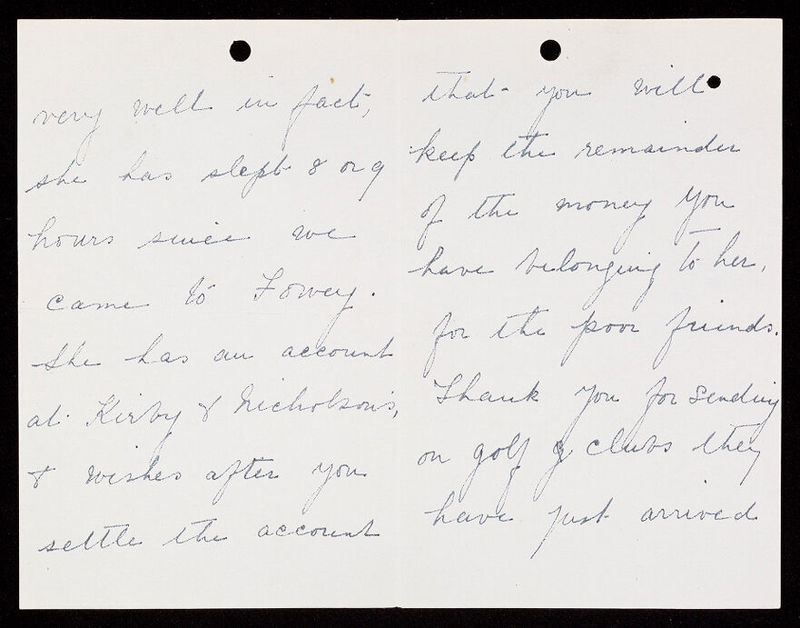 very well in fact,
she has slept 8 or 9
hours since we
came to Fowey.
She has an account
at Kirby & Nicholson's,
& wishes after you
settle the account
that you will
keep the remainder
of the money you
have belonging to her,
for the poor friends.
Thank you for sending
on golf clubs they
have just arrived